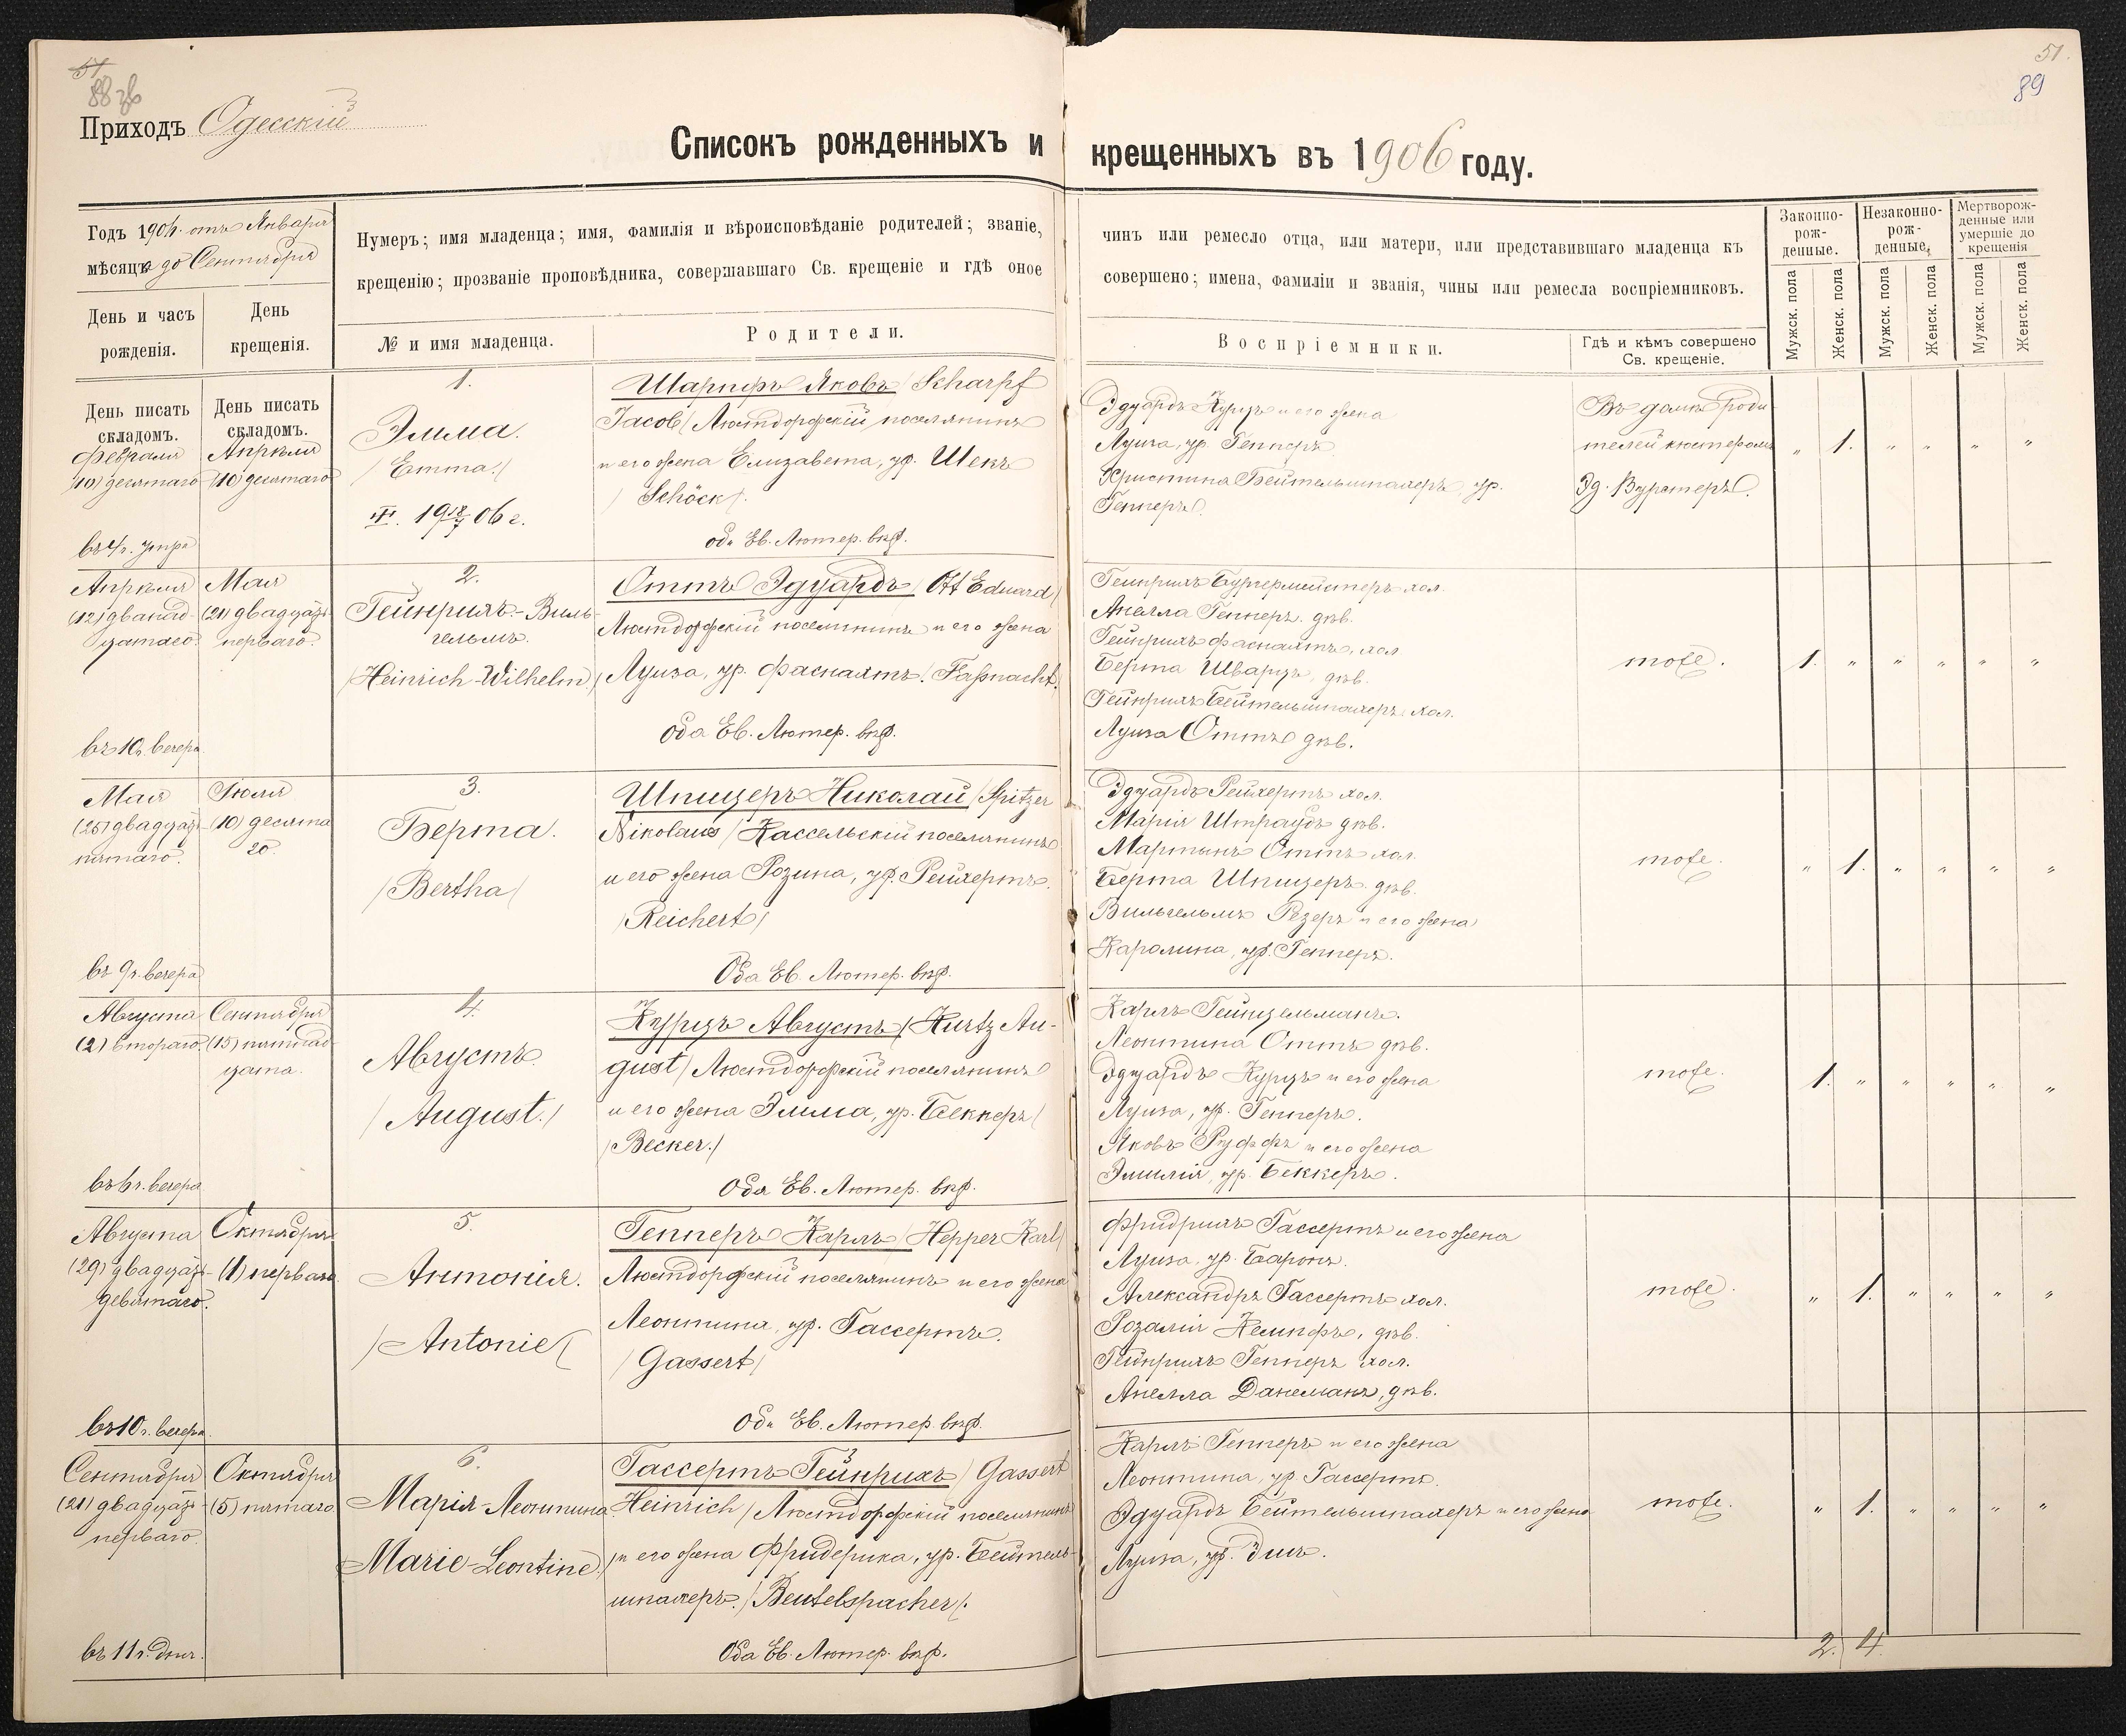 51
88 зв
51.
89
Приходъ Одесскій
Списокъ рожденныхъ и крещенныхъ въ 1906 году.
Годъ 190 отъ Января
мѣсяцъ до Сентября
День и часъ
рожденія.
День
крещенія.
Нумеръ; имя младенца; имя, фамилія и вѣроисповѣданіе родителей; званіе,
крещенію; прозваніе проповѣдника, совершавшаго Св. крещеніе и гдѣ оное
№ и имя младенца.
Родители.
чинъ или ремесло отца, или матери, или представившаго младенца къ
совершено; имена, фамиліи и званія, чины или ремесла воспріемниковъ.
Воспріемники.
Гдѣ и кѣмъ совершено
Св. крещеніе.
Законно-
рож-
денные.
Незаконно-
рож-
денные,
Мертворож-
денные или
умершіе до
крещенія
Мужск. пола
Женск. пола
Мужск. пола
Женск. пола
Мужск. пола
Женск. пола
День писать
складомъ.
День писать
складомъ.
Февраля
(10) десятаго
въ 4 ч. утра
Апрѣля
(10) десятаго
1.
Эмма.
/Emma./
19 06 г.
Шарпфъ Яковъ /Scharpf
Jacob/ Люстдорфскій поселянинъ
и его жена Елизавета, ур. Шекъ
/Schöck/.
оба Ев. Лютер. вѣр.
Эдуардъ Курцъ и его жена
Луиза, ур. Гепперъ
Христина Бейтельшпахеръ, ур.
Гепперъ.
Въ домѣ роди-
телей кюстеромъ
Эд. Вурстеръ.
„ 1. „ „ „ „
Апрѣля
(12) двѣнад-
цатаго.
въ 10 ч. вечера
Мая
(21) двадцать
перваго.
2.
Гейнрихъ-Виль-
гельмъ.
/Heinrich-Wilhelm/
Оттъ Эдуардъ /Ott Eduard/
Люстдорфскій поселянинъ и его жена
Луиза, ур. Фаснахтъ. /Faßnacht/.
Оба Ев. Лютер. вѣр.
Гейнрихъ Бургермейстеръ хол.
Анелла Гепперъ. дѣв.
Гейнрихъ Фаснахтъ, хол.
Берта Шварцъ, дѣв.
Гейнрихъ Бейтельшпахеръ хол.
Луиза Оттъ дѣв.
тоже.
1. „ „ „ „ „
Мая
(25) двадцать
пятаго.
въ 9 ч. вечера
Іюля
(10) десята-
го.
3.
Берта.
/Bertha/
Шпицеръ Николай /Spitzer
Nikolaus/ Кассельскій поселянинъ
и его жена Розина, ур. Рейхертъ.
/Reichert/
Оба Ев. Лютер. вѣр.
Эдуардъ Рейхертъ хол.
Марія Штраубъ дѣв.
Мартынъ Оттъ хол.
Берта Шпицеръ дѣв.
Вильгельмъ Резеръ и его жена
Каролина, ур. Гепперъ.
тоже.
„ 1. „ „ „ „
Августа
(2) втораго.
въ 6 ч. вечера
Сентября
(15) пятнад-
цата.
4.
Августъ.
/August./
Курцъ Августъ /Kurtz Au-
gust/ Люстдорфскій поселянинъ
и его жена Эмма, ур. Беккеръ/
/Becker./
Оба Ев. Лютер. вѣр.
Карлъ Гейнцельманъ.
Леонтина Оттъ дѣв.
Эдуардъ Курцъ и его жена
Луиза, ур. Гепперъ.
Яковъ Руффъ и его жена
Эмилія, ур. Беккеръ.
тоже.
1. „ „ „ „ „
Августа
(29) двадцать
девятаго.
въ 10 ч. вечера.
Октября
(1) перваго
5.
Антонія.
/Antonie/
Гепперъ Карлъ /Hepper Karl/
Люстдорфскій поселянинъ и его жена
Леонтина, ур. Гассертъ.
/Gassert/
Оба Ев. Лютер. вѣр.
Фридрихъ Гассертъ и его жена
Луиза, ур. Баронъ.
Александръ Гассертъ хол.
Розалія Кемпфъ, дѣв.
Гейнрихъ Гепперъ хол.
АнеллаДанеманъ, дѣв.
тоже.
„ 1. „ „ „ „
Сентября
(21) двадцать
перваго.
въ 11 ч. дня.
Октября
(5) пятаго.
6.
Марія-Леонтина
/Marie-Leontine/
Гассертъ Гейнрихъ /Gassert
Heinrich/ Люстдорфскій поселянинъ
и его жена Фридерика, ур. Бейтель-
шпахеръ. /Beutelspacher/.
Оба Ев. Лютер. вѣр.
Карлъ Гепперъ и его жена
Леонтина, ур. Гассертъ.
Эдуардъ Бейтельшпахеръ и его жена
Луиза, ур.
тоже.
„ 1. „ „ „ „
2. 4.